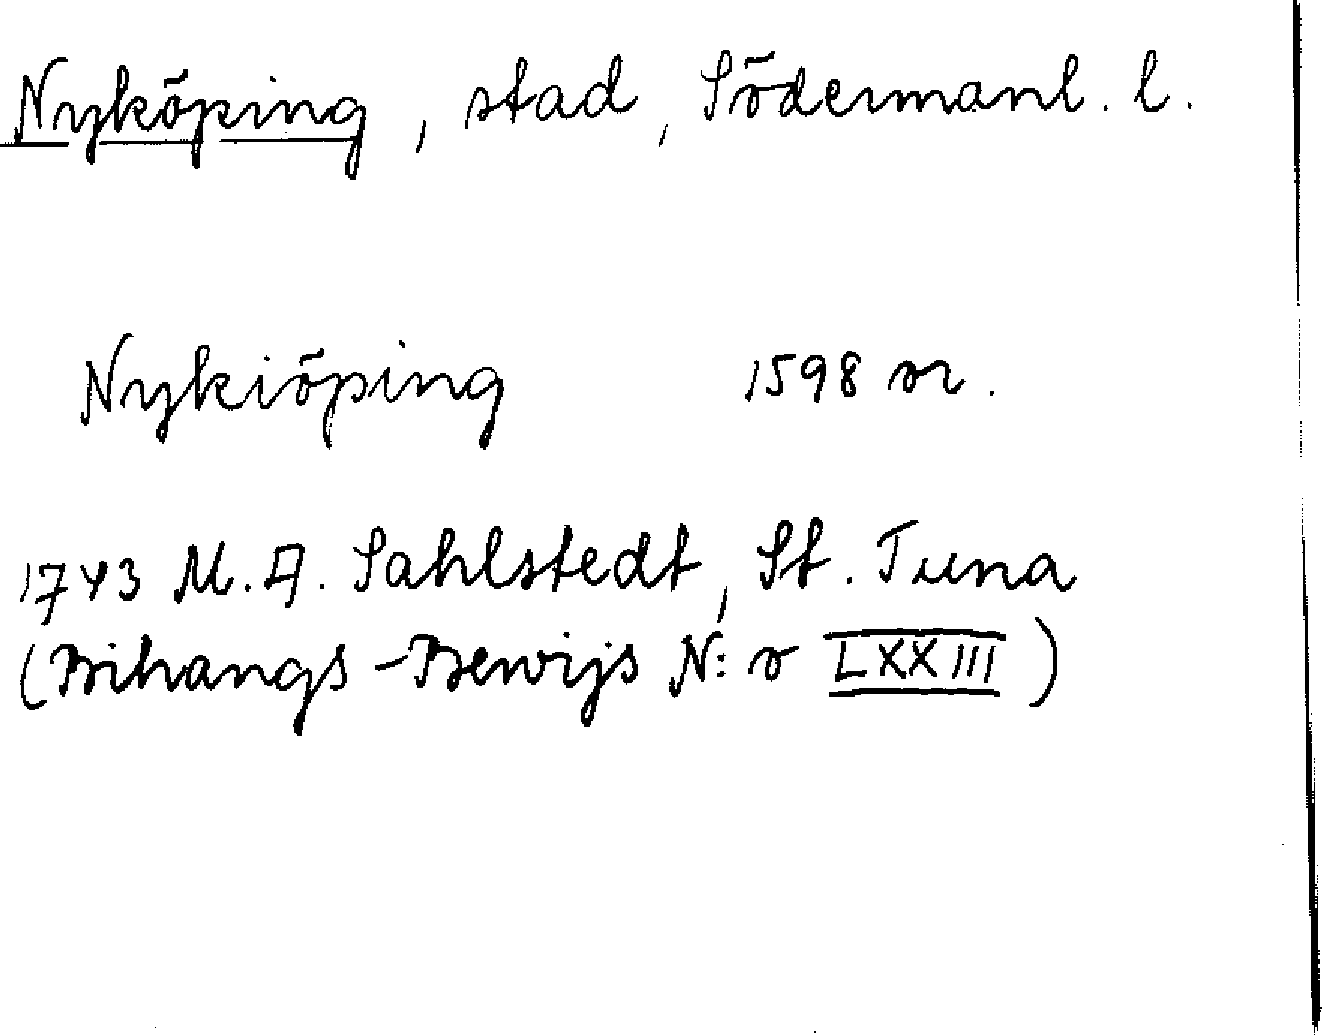 Nyköping, stad, Södermanl. l.
Nykiöping 1598 or.
1743 M. A. Sahlstedt, St. Tuna
(Bihangs-Bewijs N:o LXXIII)